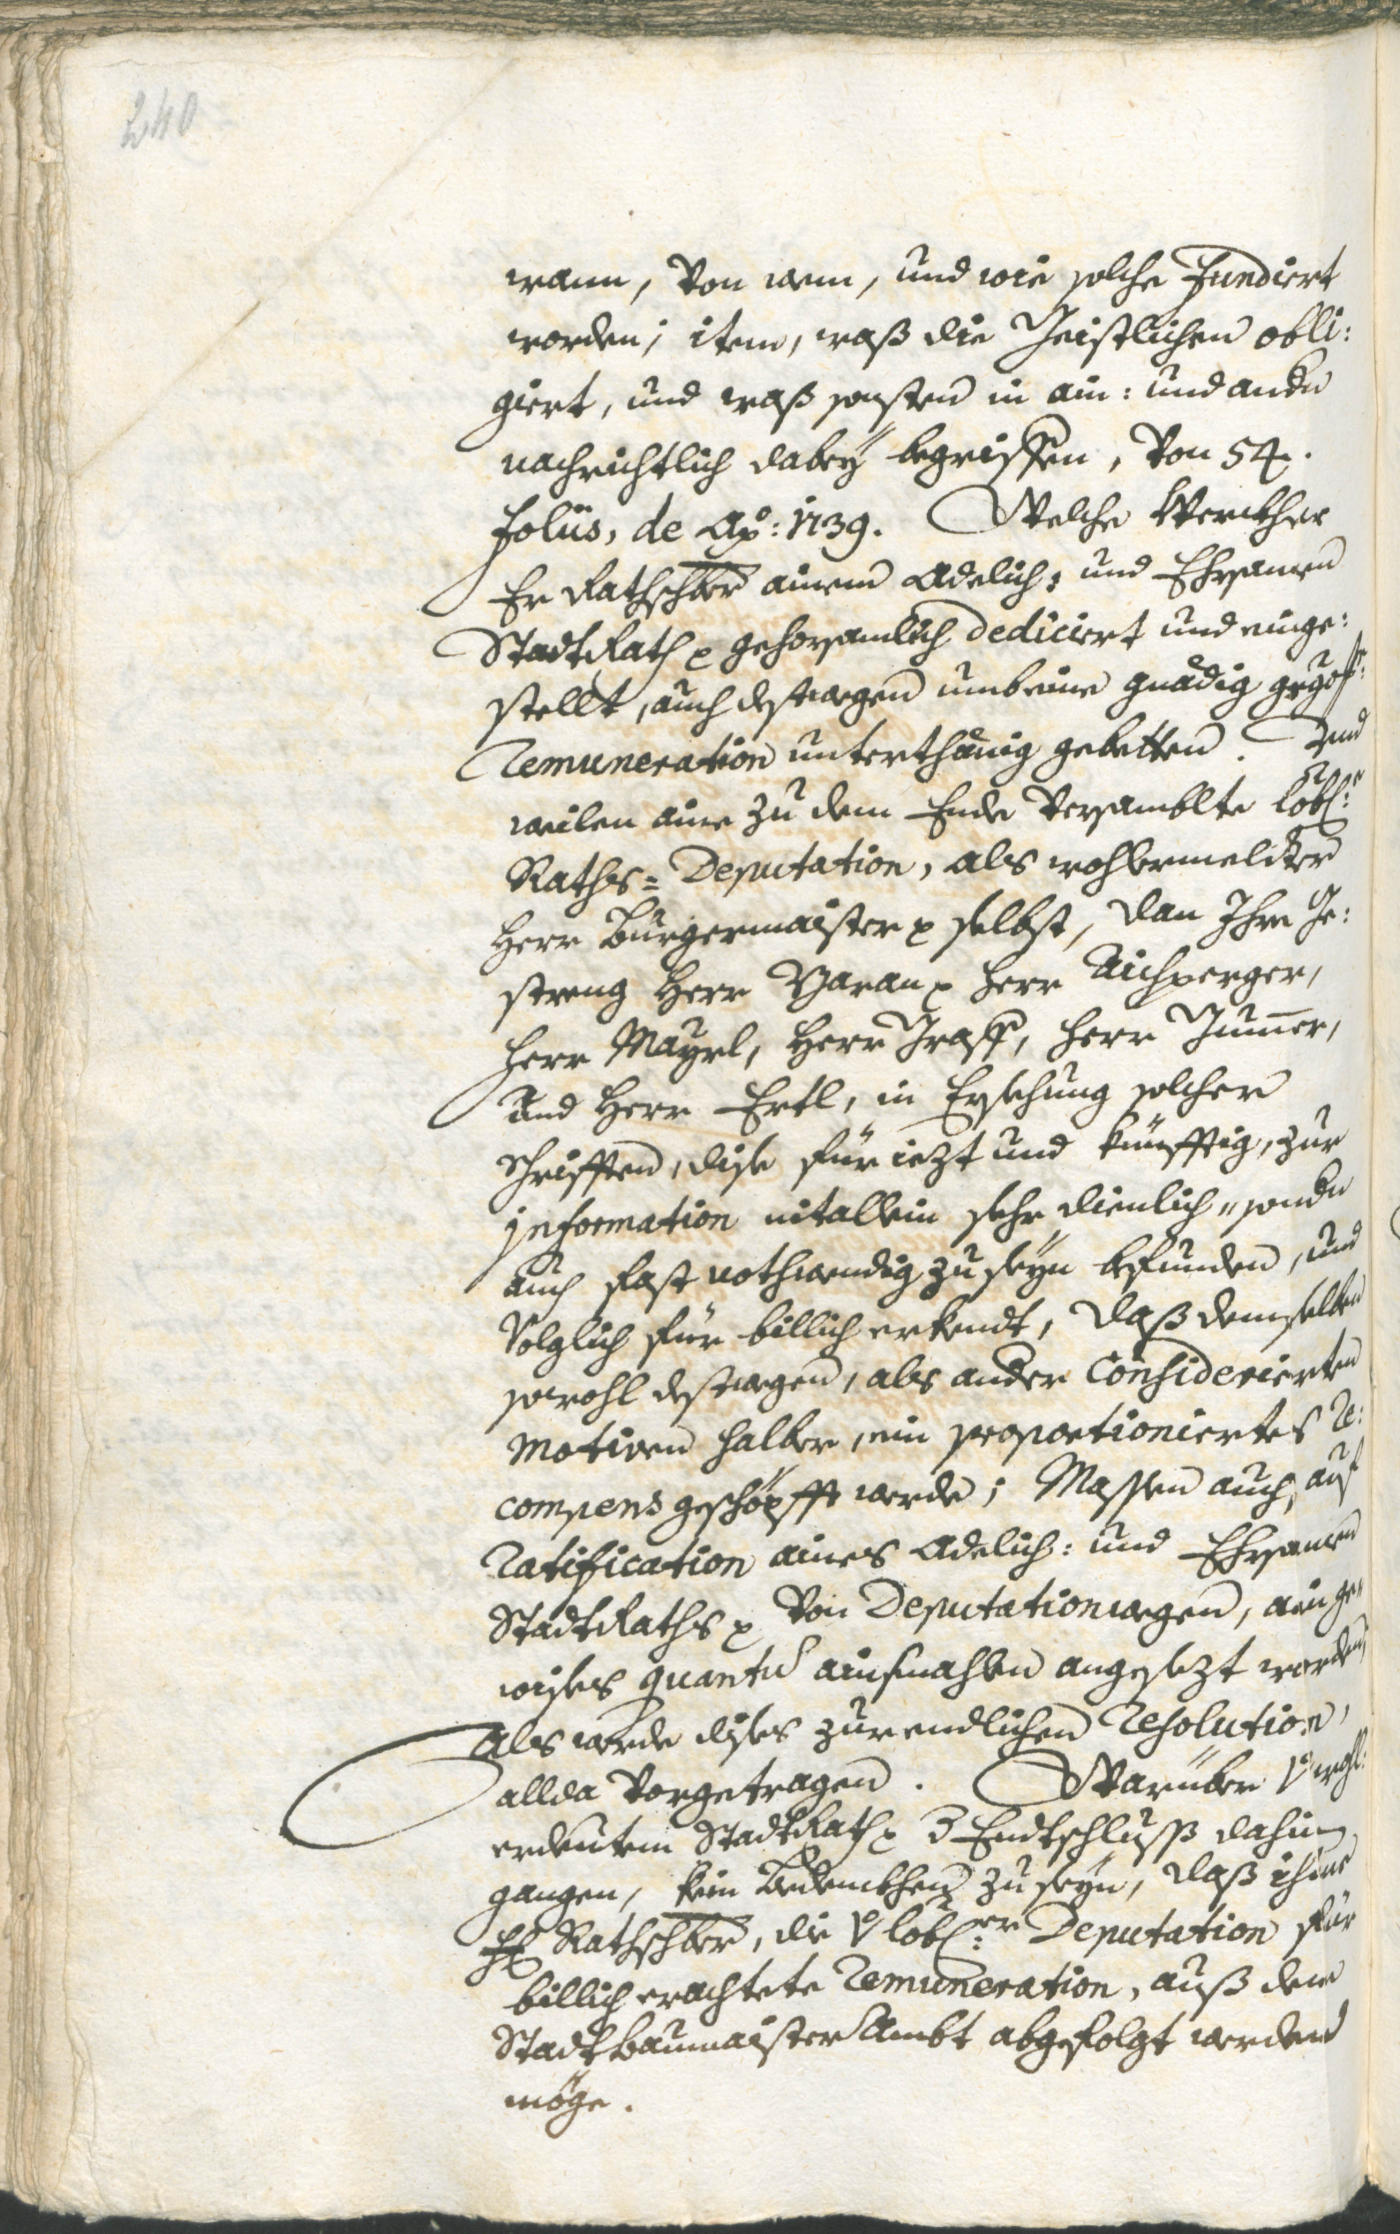 240
wann, Von wem, und wie solche Fundiert
worden; item, waß die Geistlichen obli:
giert, und waß sonsten in ain: und andern
nachrichtlich dabey begriffen, Von 54.
foliis, de Ao: 1739. Welche Werckher
Er Rathschbr ainem Adelich: und Ehrsamen
StadtRath gehorsamblich dediciert und einge:
stellt, auch destwegen umb eine gnädig
Remuneration unterthänig gebetten. Und
weilen aine zu dem Ende Versamblte löbl:e
Raths= Deputation, als wohlermelter
Herr Burgermaister selbst, dan Ihro Ge:
streng Herr Baran Herr Aichperger,
Herr Mayrl, Herr Graff, Herr Gumer,
Und Herr Ertl, in Ersehung solcher
Schrifften, dise für iezt und künfftig, zur
jnformation nit allein sehr dienlich, sondern
auch fast nothwendig zu seyn befunden, und
Volglich für billich erkendt, daß demselben
sowohl destwegen, als ander Considerierten
Motiven halber, ein proportioniertes Re:
compens geschöpfft werde; Massen auch, auf
Ratification aines Adelich: und Ehrsamen
StadtRaths Von Deputation wegen, ain ge=
wises quantum ainsmahlen angesezt worden,
Als werde dises zur endlichen Resolution,
allda Vorgetragen. Warüber wohl:
erdeutem StadtRath Endtschluß dahin
gangen, kein Bedenckhen zu seyn, daß ihme
Hr Rathschbr, die löbl:er Deputation für
billich erachtete Remuneration, auß dem
Stadt Baumaister Ambt abgefolgt werden
möge.